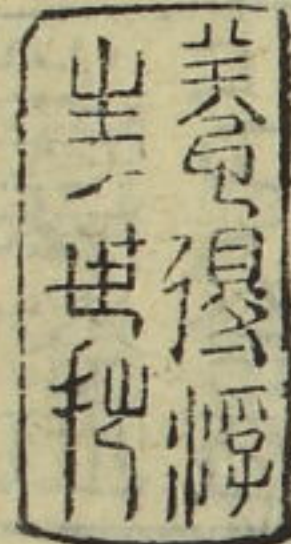 養得浮
生一世拙